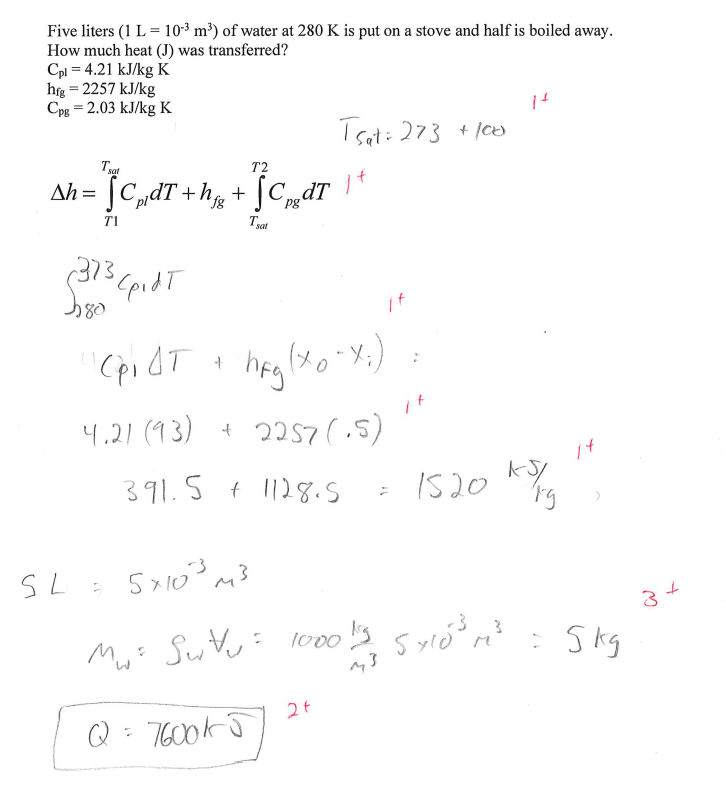 Five liters (1 L = 10⁻³ m³) of water at 280 K is put on a stove and half is boiled away.
How much heat (J) was transferred?
Cpl = 4.21 kJ/kg K
hfg = 2257 kJ/kg
Cpg = 2.03 kJ/kg K
1+
Tsat = 273 + 100
Δh = ∫_{T1}^{Tsat} CpldT + hfg + ∫_{Tsat}^{T2} CpgdT 1+
∫_{280}^{373} CpldT
1+
Cpl ΔT + hfg (xo - xi) =
4.21 (93) + 2257 (.5) 1+
391.5 + 1128.5 = 1520 kJ/kg 1+
5 L = 5×10⁻³ m³
3+
Mw = ρw ∀w = 1000 kg/m³ 5×10⁻³ m³ = 5 kg
Q = 7600 kJ 2+